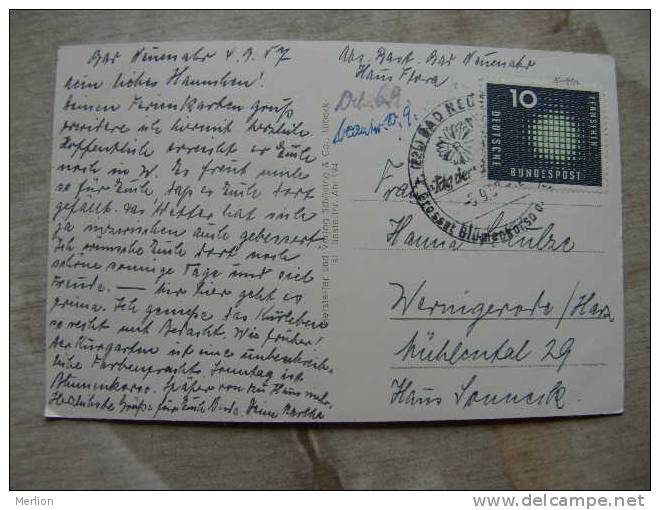 Bad Neuenahr 4.9.57
Mein liebes Hannchen!
Deinen Ferienkarten gruß
erwidere ich hiermit herzlichst.
Hoffentlich erreicht er Euch
noch in W. Es freut mich
so für Euch, daß es Euch dort
gefällt. Das Wetter hat sich
ja inzwischen auch gebessert.
Ich wünsche Euch dort noch
schöne sonnige Tage und viel
Freude. — Mir hier geht es
prima. Ich genieße das Kurleben
so recht mit Bedacht. Wie früher!
Der Kurgarten ist eine unbeschreib-
liche Farbenpracht. Sonntag ist
Blumenkorso. Später von zu Haus mehr.
Herzlichste Grüße für Euch Beide. Deine Martha
Abs. Bad Neuenahr
Haus Flora
Hersteller und Verlag Schöning & Co., Lübeck
(22b) BAD NEU
Tag der
Grosser Blumenkorso
10
FERNSEHEN
DEUTSCHE
BUNDESPOST
Frau
Hanna Schulze
Wernigerode/Harz
Mühlental 29
Haus Sonneck
Merlion
www.delcampe.net